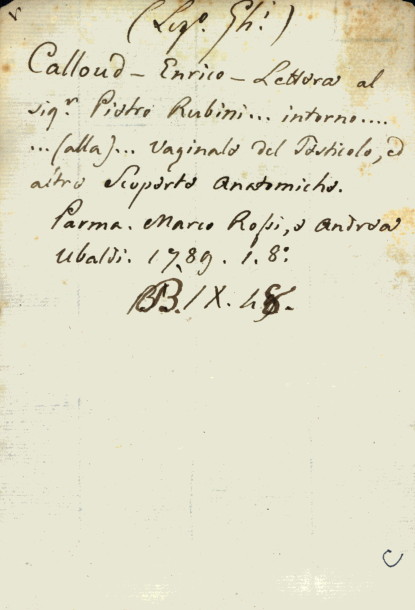 (Leg.o Gh.i)
Calloud - Enrico - Lettera al
sig.r Pietro Rubini... intorno....
...(alla)... Vaginale del Testicolo, ed
altre Scoperte Anatomiche.
Parma. Marco Rossi, e Andrea
Ubaldi. 1789. 1. 8.o
BB. IX.
C